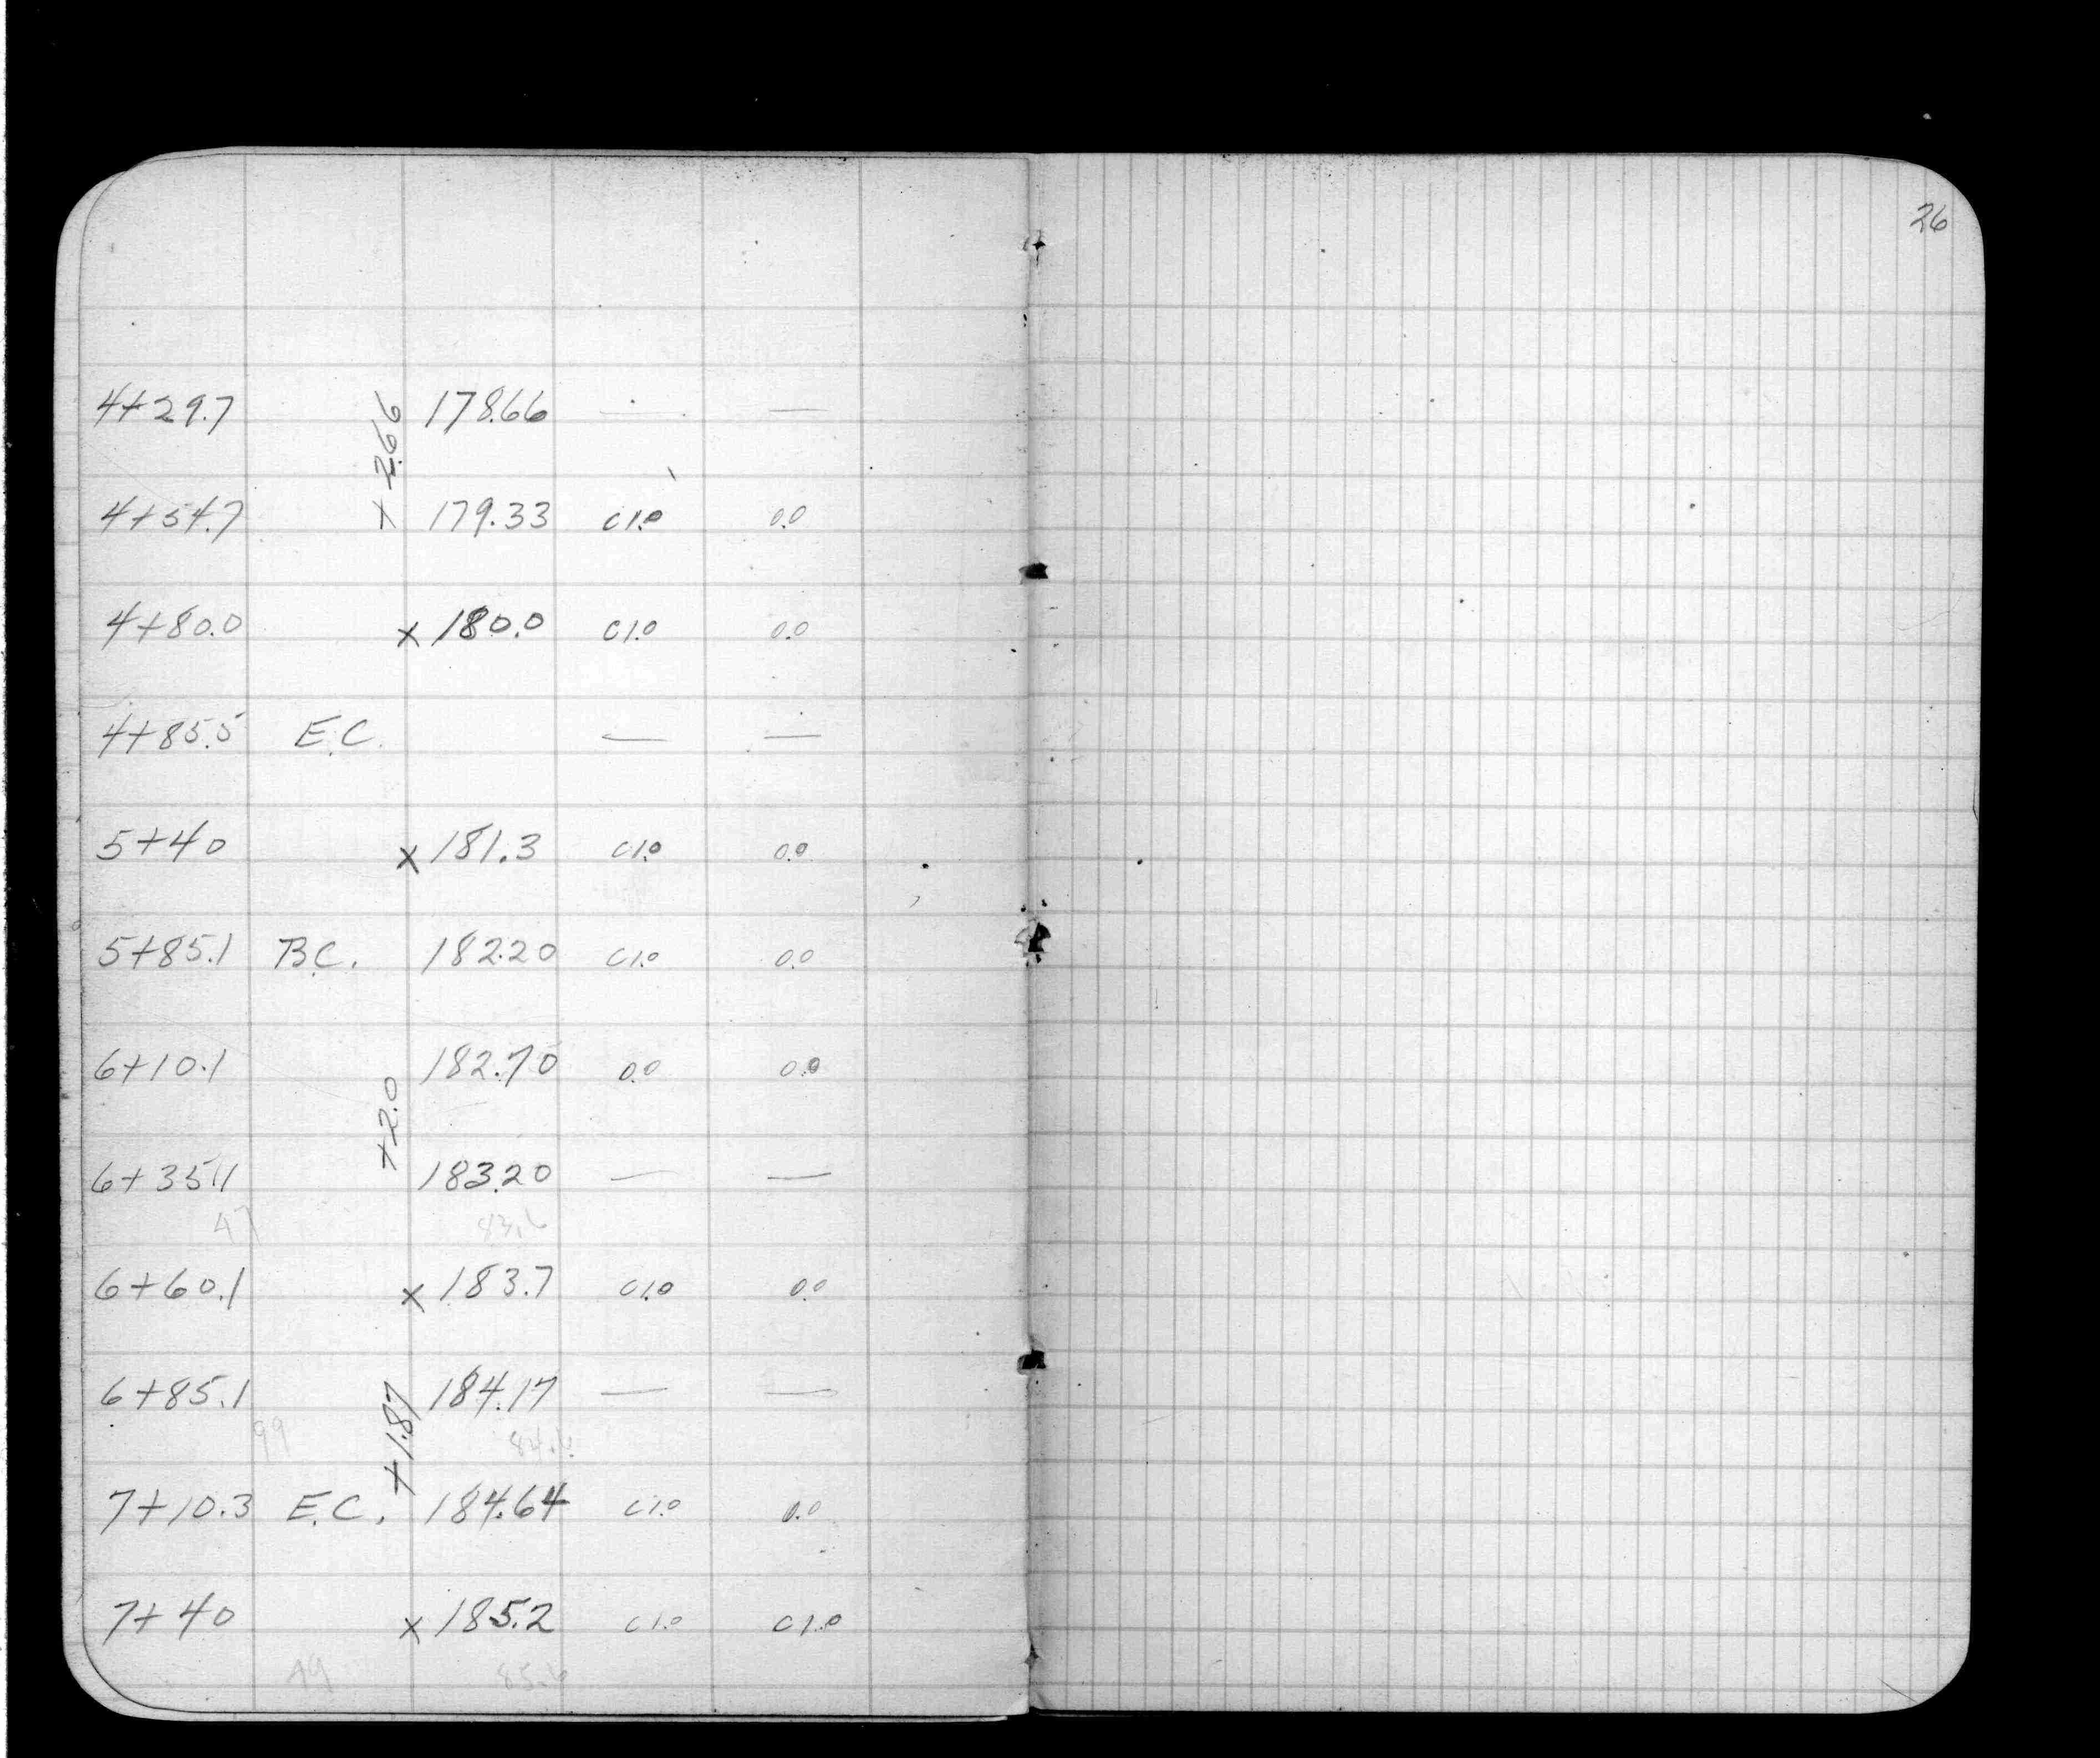 26
4+29.7 178.66 — —
+2.66
4+54.7 179.33 C1.0 0.0
4+80.0 x 180.0 C1.0 0.0
4+85.5 E.C. — —
5+40 x 181.3 C1.0 0.0
5+85.1 B.C. 182.20 C1.0 0.0
6+10.1 182.70 0.0 0.0
+2.0
6+35.1 183.20 — —
47 83.6
6+60.1 x 183.7 C1.0 0.0
6+85.1 184.17 — —
+1.87
99 84.6
7+10.3 E.C. 184.64 C1.0 0.0
7+40 x 185.2 C1.0 C1.0
49 85.6